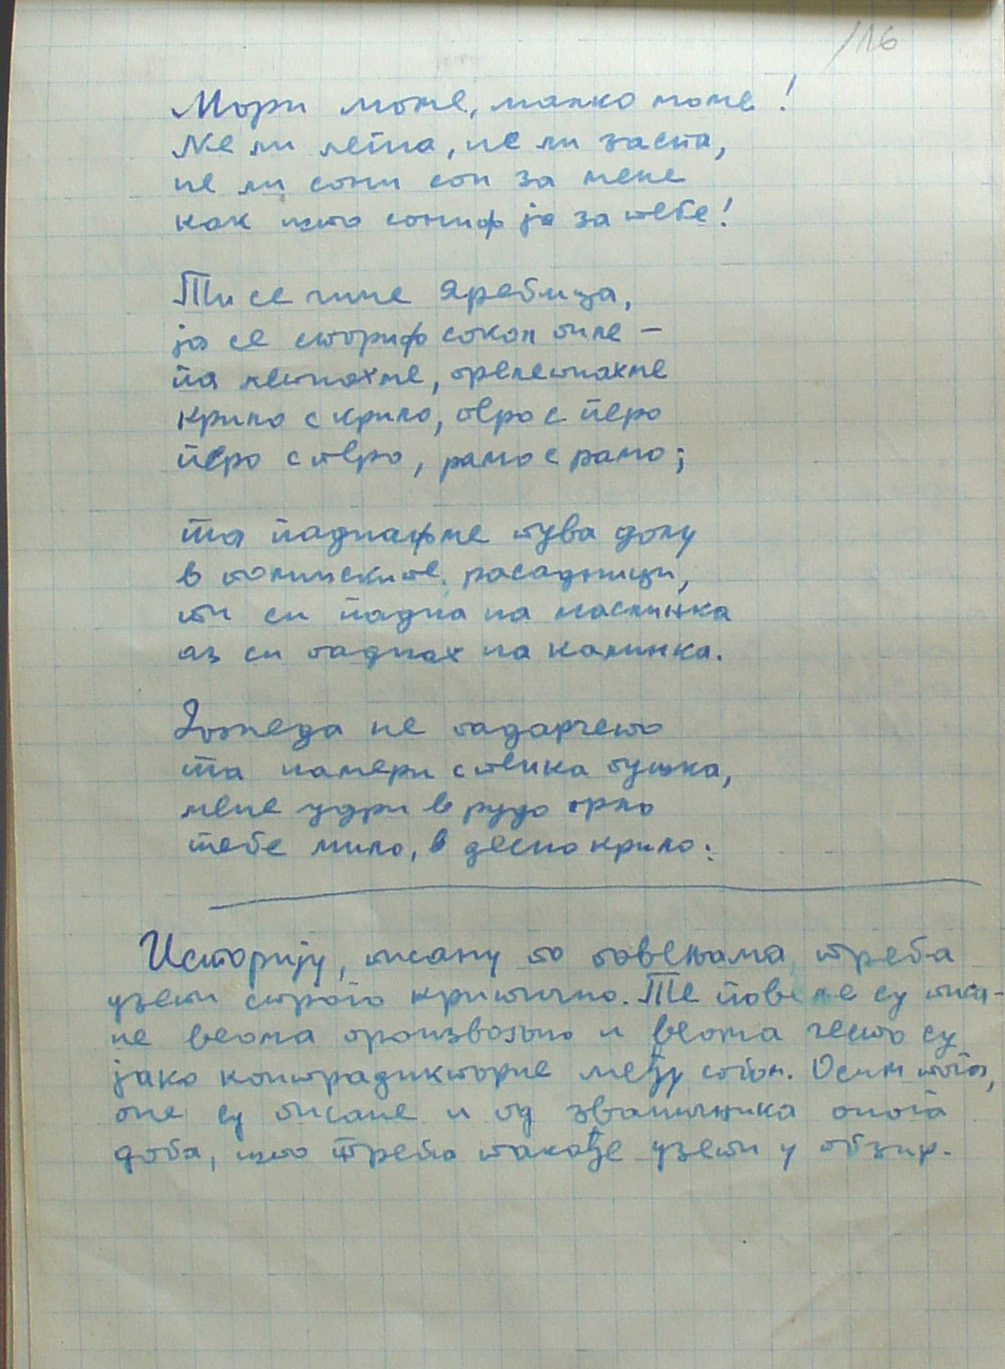 /16
Мори моме, малко моме!
Не ли легна, не ли заспа,
не ли сони сон за мене
как што сониф ја за тебе!
Ти се чине яребица,
ја се сториф сокол пиле –
па летнахме, прелетнахме
крило с крило, перо с перо
перо с перо, рамо с рамо;
та паднафме тува долу
в полинските расадници,
ти си падна на маслинка
аз си паднах на калинка.
не падарчето
та намери с тенка пушка,
мене удри в рудо грло
тебе мило, в десно крило.
Историју, писану по повељама треба
узети строго критично. Те повеље су писа-
не веома произвољно и веома често су
јако контрадикторне међу собом. Осим тога,
оне су писане и од званичника онога
доба, што треба такође узети у обзир.